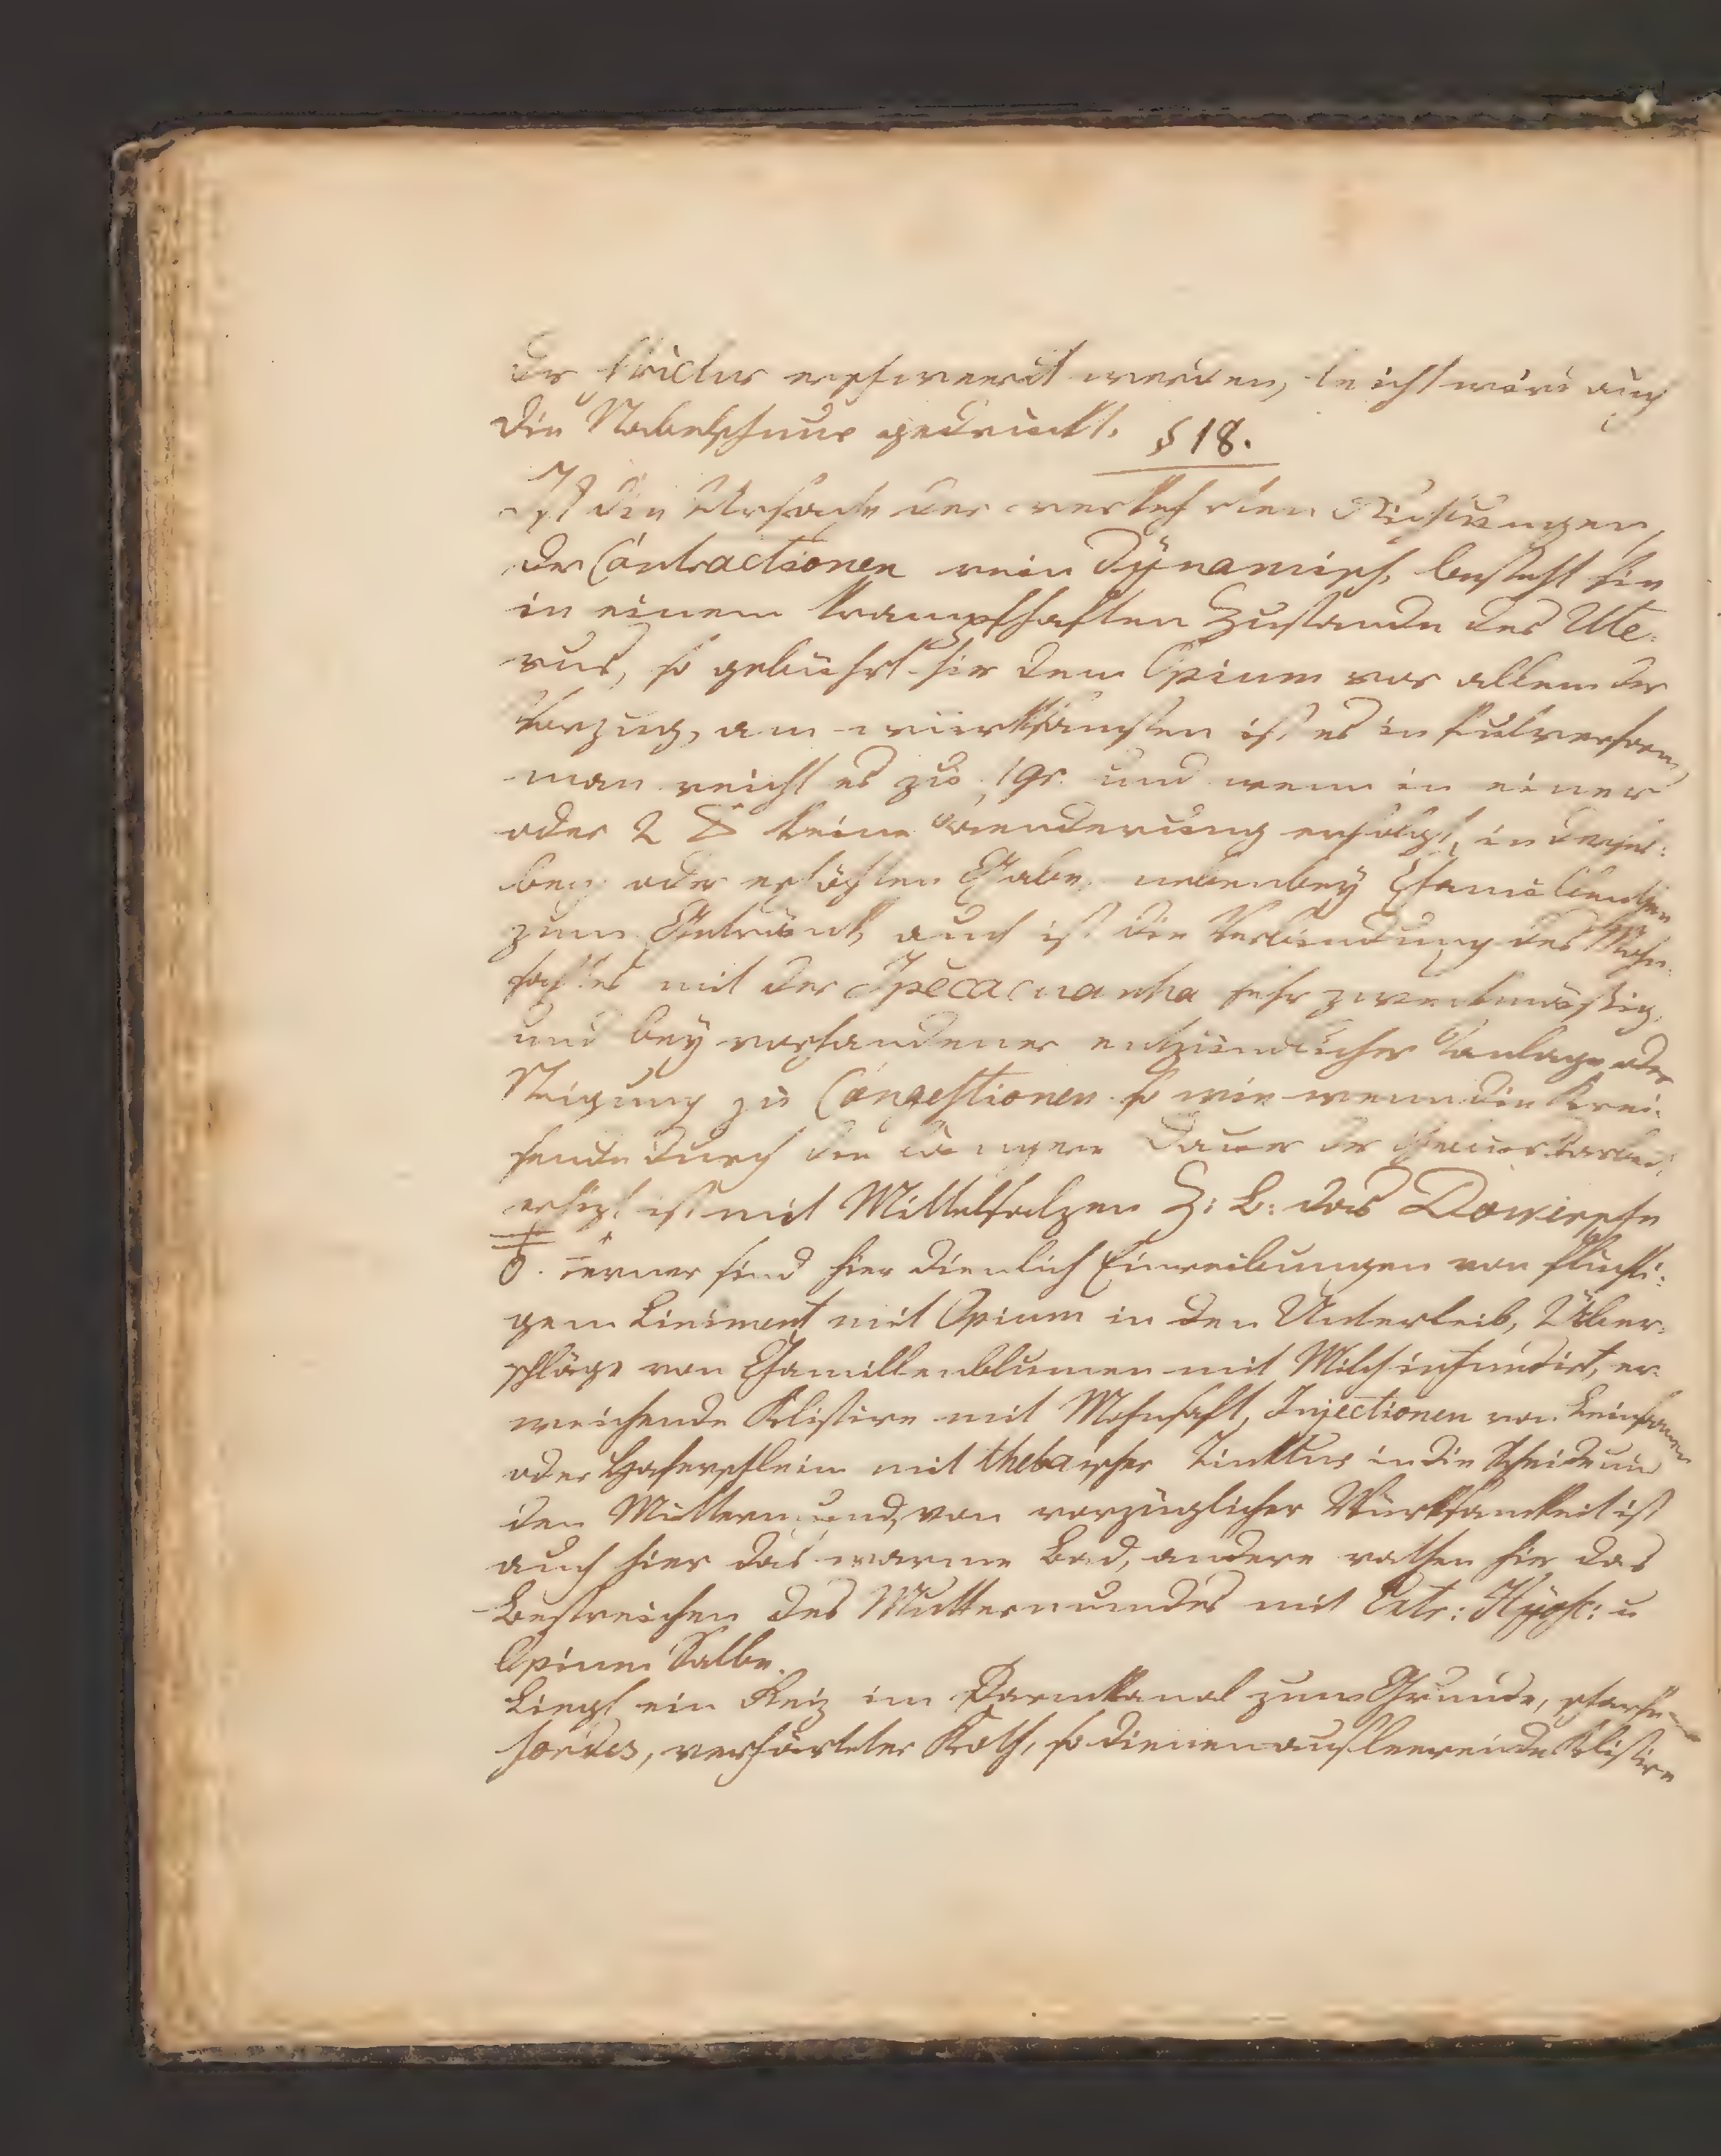 der strictur erschwert werden, leicht würde auch
die Nabelschnur gedrückt. § 18.
Ist die Ursache der verkehrten Richtungen
der Contractionen rein dÿnamisch, besteht sie
in einem krampfhaften Zustande des Ute-
rus, so gebührt hier dem Opium vor allem der
Vorzug, am würksamsten ist es in Pulverform,
man reicht es zu 1 gr. und wenn in einer
oder 2 keine Aenderung erfolgt, in dersel-
ben oder erhöhten Gabe, nebenbeÿ Chamillenthee
zum Getränk, auch ist die Verbindung des Mohn-
saftes mit der Ipecacuanha sehr zweckmässig,
und beÿ vorhandener entzündlicher Anlage oder
Neigung zu Congestionen so wie wenn die Krei-
sende durch die längere Dauer der Geburtsarbeit
erhizt ist mit Mittelsalzen Z: B: das Dowersche
Ferner sind hier dienlich Einreibungen von flüchti-
gem Liniment mit Opium in den Unterleib, Über-
schläge von Chamillenblumen mit Milch infundirt, er-
weichende Klistire mit Mohnsaft, Injectionen von Leinsamen
oder Haferschleim mit thebaischer Tinktur in die Scheide und
den Muttermund, von vorzüglicher Würksamkeit ist
auch hier das warme Bad, andere rathen hier das
Bestreichen des Muttermundes mit Extr: Hÿosc: u
Opium Salbe.
Liegt ein Reiz im Darmkanal zum Grunde,
sordes, verhärteter Koth, so dienen ausleerende Klistire